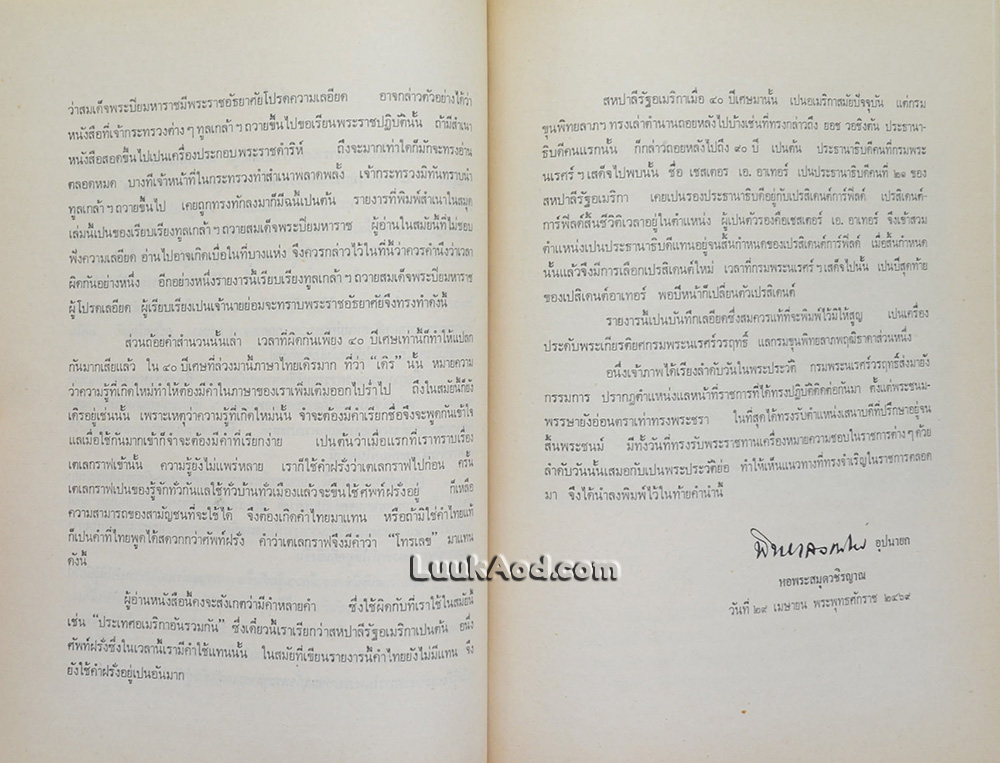 ว่าสมเด็จพระปิยมหาราชมีพระราชอัธยาศัยโปรดความเลอียด อาจกล่าวตัวอย่างได้ว่า
หนังสือที่เจ้ากระทรวงต่าง ๆ ทูลเกล้า ฯ ถวายขึ้นไปขอเรียนพระราชปฏิบัตินั้น ถ้ามีสำเนา
หนังสือสอดขึ้นไปเปนเครื่องประกอบพระราชดำริห์ ถึงจะมากเท่าใดก็มักจะทรงอ่าน
ตลอดหมด บางทีเจ้าหน้าที่ในกระทรวงทำสำเนาพลาดพลั้ง เจ้ากระทรวงมิทันทราบนำ
ทูลเกล้า ฯ ถวายขึ้นไป เคยถูกทรงทักลงมาก็มีฉนี้เปนต้น รายงารที่พิมพ์สำเนาในสมุด
เล่มนี้เปนของเรียบเรียงทูลเกล้า ฯ ถวายสมเด็จพระปิยมหาราช ผู้อ่านในสมัยนี้ที่ไม่ชอบ
ฟังความเลอียด อ่านไปอาจเกิดเบื่อในที่บางแห่ง จึงควรกล่าวไว้ในที่นี้ว่าควรคำนึงว่าเวลา
ผิดกันอย่างหนึ่ง อีกอย่างหนึ่งรายงารนี้เรียบเรียงทูลเกล้า ฯ ถวายสมเด็จพระปิยมหาราช
ผู้โปรดเลอียด ผู้เรียบเรียงเปนเจ้านายย่อมจะทราบพระราชอัธยาศัยจึงทรงทำดังนี้
ส่วนถ้อยคำสำนวนนั้นเล่า เวลาที่ผิดกันเพียง ๔๐ ปีเศษเท่านี้ก็ทำให้แปลก
กันมากเสียแล้ว ใน ๔๐ ปีเศษที่ล่วงมานี้ภาษาไทยเดิรมาก ที่ว่า “เดิร” นั้น หมายความ
ว่าความรู้ที่เกิดใหม่ทำให้ต้องมีคำในภาษาของเราเพิ่มเติมออกไปร่ำไป ถึงในสมัยนี้ก็ยัง
เดิรอยู่เช่นนั้น เพราะเหตุว่าความรู้ที่เกิดใหม่นั้น จำจะต้องมีคำเรียกชื่อจึงจะพูดกันเข้าใจ
แลเมื่อใช้กันมากเข้าก็จำจะต้องมีคำที่เรียกง่าย เปนต้นว่าเมื่อแรกที่เราทราบเรื่อง
เตเลกราฟเข้านั้น ความรู้ยังไม่แพร่หลาย เราก็ใช้คำฝรั่งว่าเตเลกราฟไปก่อน ครั้น
เตเลกราฟเปนของรู้จักทั่วกันแลใช้ทั่วบ้านทั่วเมืองแล้วจะขืนใช้ศัพท์ฝรั่งอยู่ ก็เหลือ
ความสามารถของสามัญชนที่จะใช้ได้ จึงต้องเกิดคำไทยมาแทน หรือถ้ามิใช่คำไทยแท้
ก็เปนคำที่ไทยพูดได้สดวกกว่าศัพท์ฝรั่ง คำว่าเตเลกราฟจึงมีคำว่า “โทรเลข” มาแทน
ดังนี้
ผู้อ่านหนังสือนี้คงจะสังเกตว่ามีคำหลายคำ ซึ่งใช้ผิดกับที่เราใช้ในสมัยนี้
เช่น “ประเทศอเมริกาอันรวมกัน” ซึ่งเดี๋ยวนี้เราเรียกว่าสหปาลีรัฐอเมริกาเปนต้น อนึ่ง
ศัพท์ฝรั่งซึ่งในเวลานี้เรามีคำใช้แทนนั้น ในสมัยที่เขียนรายงารนี้คำไทยยังไม่มีแทน จึง
ยังใช้คำฝรั่งอยู่เปนอันมาก
สหปาลีรัฐอเมริกาเมื่อ ๔๐ ปีเศษมานั้น เปนอเมริกาสมัยปัจจุบัน แต่กรม
ขุนพิทยลาภฯ ทรงเล่าตำนานถอยหลังไปบ้างเช่นที่ทรงกล่าวถึง ยอช วอชิงตัน ประธานา-
ธิบดีคนแรกนั้น ก็กล่าวถอยหลังไปถึง ๙๐ ปี เปนต้น ประธานาธิบดีคนที่กรมพระ
นเรศร์ ฯ เสด็จไปพบนั้น ชื่อ เชสเตอร เอ. อาเทอร์ เปนประธานาธิบดีคนที่ ๒๑ ของ
สหปาลีรัฐอเมริกา เคยเปนรองประธานาธิบดีอยู่กับเปรสิเดนต์การ์ฟิลด์ เปรสิเดนต์-
การ์ฟิลด์สิ้นชีวิตเวลาอยู่ในตำแหน่ง ผู้เปนตัวรองคือเชสเตอร์ เอ. อาเทอร์ จึงเข้าสวม
ตำแหน่งเปนประธานาธิบดีแทนอยู่จนสิ้นกำหนดของเปรสิเดนต์การ์ฟิลด์ เมื่อสิ้นกำหนด
นั้นแล้วจึงมีการเลือกเปรสิเดนต์ใหม่ เวลาที่กรมพระนเรศร์ ฯ เสด็จไปนั้น เปนปีสุดท้าย
ของเปสิเดนต์อาเทอร์ พอปีหน้าก็เปลี่ยนตัวเปรสิเดนต์
รายงารนี้เปนบันทึกเลอียดซึ่งสมควรแท้ที่จะพิมพ์ไว้มิให้สูญ เปนเครื่อง
ประดับพระเกียรติยศกรมพระนเรศร์วรฤทธิ์ แลกรมขุนพิทยลาภพฤฒิธาดาส่วนหนึ่ง
อนึ่งเจ้าภาพได้เรียงลำดับวันในพระประวัติ กรมพระนเรศร์วรฤทธิ์ส่งมายัง
กรรมการ ปรากฏตำแหน่งแลหน้าที่ราชการที่ได้ทรงปฏิบัติติดต่อกันมา ตั้งแต่พระชนม-
พรรษายังอ่อนตราเท่าทรงพระชรา ในที่สุดได้ทรงรับตำแหน่งเสนาบดีที่ปรึกษาอยู่จน
สิ้นพระชนม์ มีทั้งวันที่ทรงรับพระราชทานเครื่องหมายความชอบในราชการต่าง ๆ ด้วย
ลำดับวันนั้นเสมอกับเปนพระประวัติย่อ ทำให้เห็นแนวทางที่ทรงจำเริญในราชการตลอด
มา จึงได้นำลงพิมพ์ไว้ในท้ายคำนำนี้
อุปนายก
หอพระสมุดวชิรญาณ
วันที่ ๒๙ เมษายน พระพุทธศักราช ๒๔๖๙
LuukAod.com